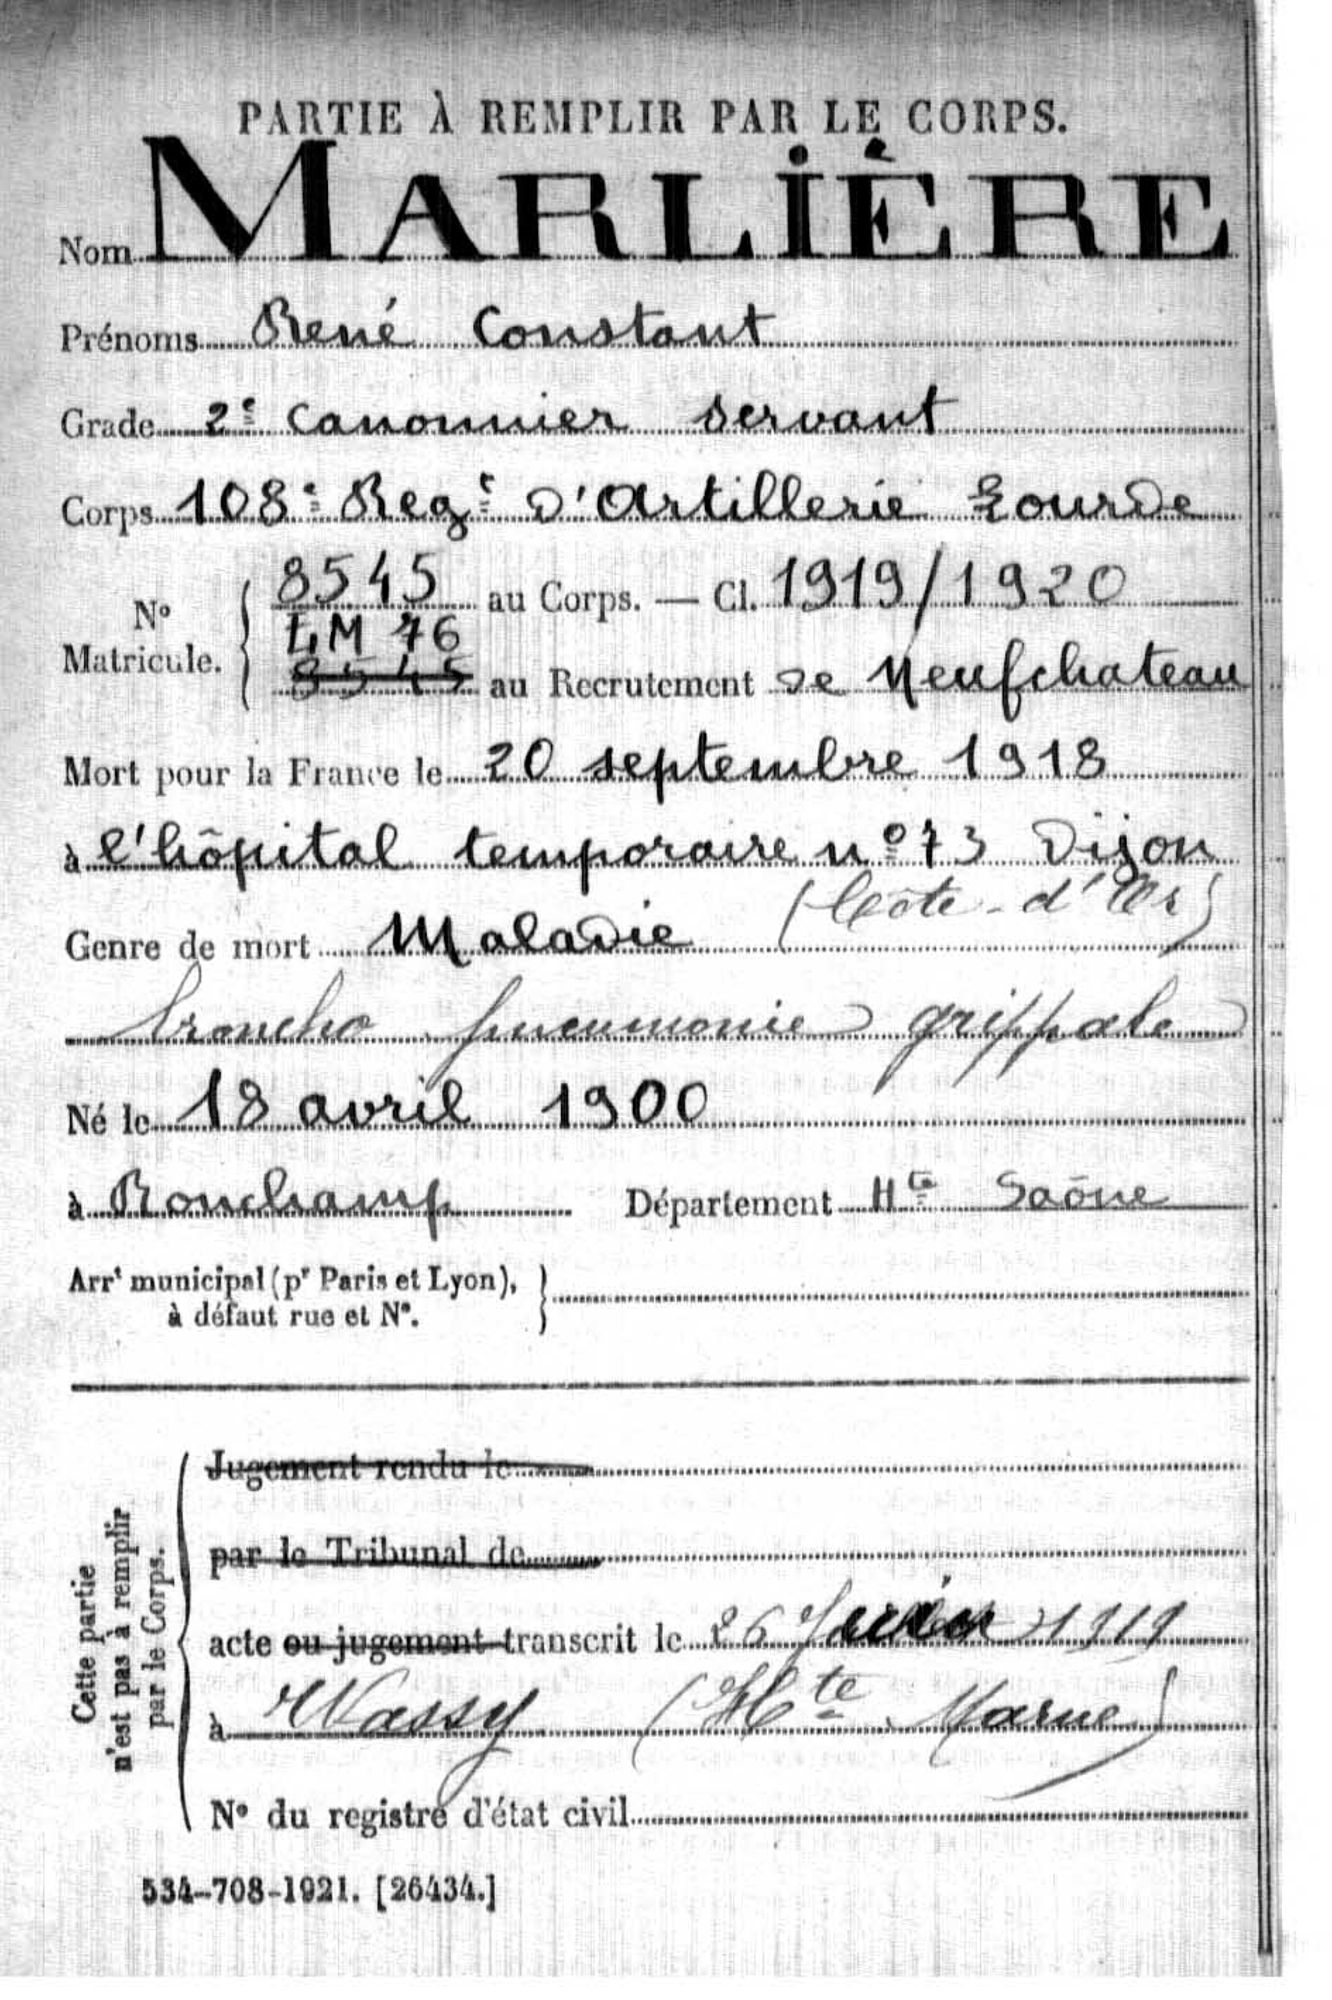 PARTIE À REMPLIR PAR LE CORPS.
Nom MARLIÈRE
Prénoms René Constant
Grade 2e Canonnier servant
Corps 108e Regt D'Artillerie Lourde
No Matricule. { 8545 au Corps. — Cl. 1919/1920
LM 76
8545 au Recrutement de Neufchateau
Mort pour la France le 20 septembre 1918
à l'hôpital temporaire no 73 Dijon
(Côte-d'Or)
Genre de mort Maladie
broncho pneumonie grippale
Né le 18 avril 1900
à Ronchamp Département Hte Saône
Arrt municipal (pr Paris et Lyon), à défaut rue et No. }
Cette partie n'est pas à remplir par le Corps.
Jugement rendu le
par le Tribunal de
acte ou jugement transcrit le 26 1919
à Wassy (Hte Marne)
No du registre d'état civil
534-708-1921. [26434.]